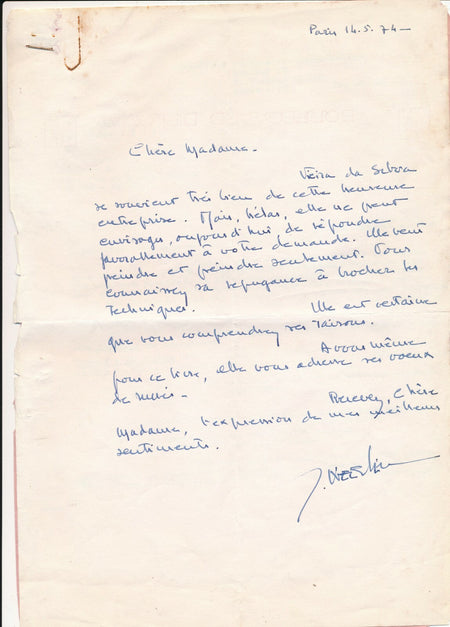 Paris 14.5.74-
Chère Madame.
Vieira da Silva
se souvient très bien de cette heureuse
entreprise. Mais, hélas, elle ne peut
envisager, aujourd'hui, de répondre
favorablement à votre demande. Elle veut
peindre et peindre seulement. Vous
connaissez sa répugnance à brocher les
techniques.
Elle est certaine
que vous comprendrez ses raisons.
A vous même
pour ce livre, elle vous adresse ses voeux
de succès-
Recevez, Chère
Madame, l'expression de mes meilleurs
sentiments.